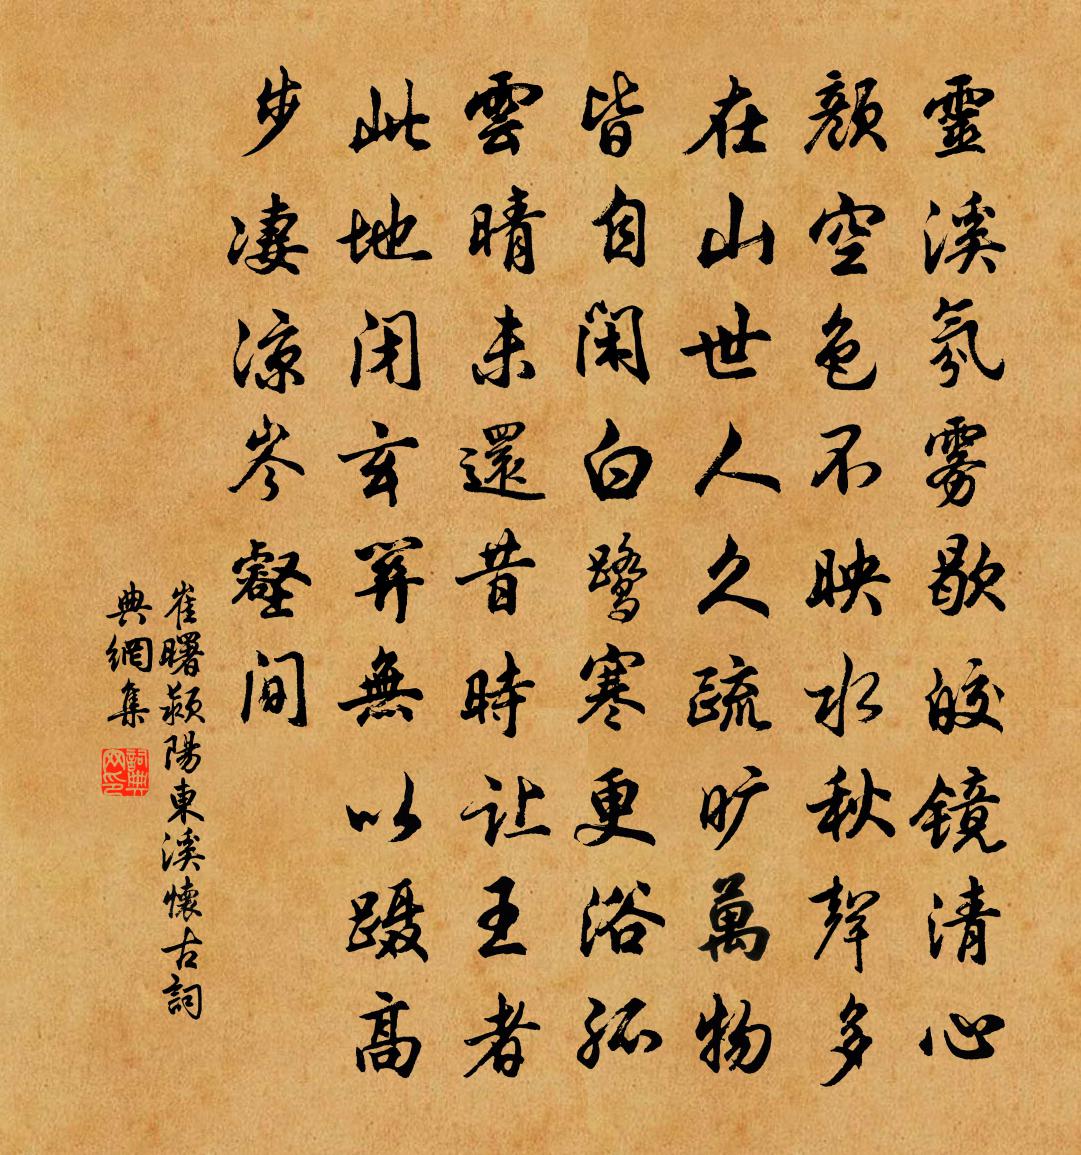 靈溪氛雾歇皎镜清心
顔空色不映水秋聲多
在山世人久疏旷萬物
皆自闲白鹭寒更浴孤
雲晴未還昔時让王者
此地闭玄關無以蹑高
步凄涼岑壑间
崔曙颍陽東溪懷古詞
典網集
詞典网印